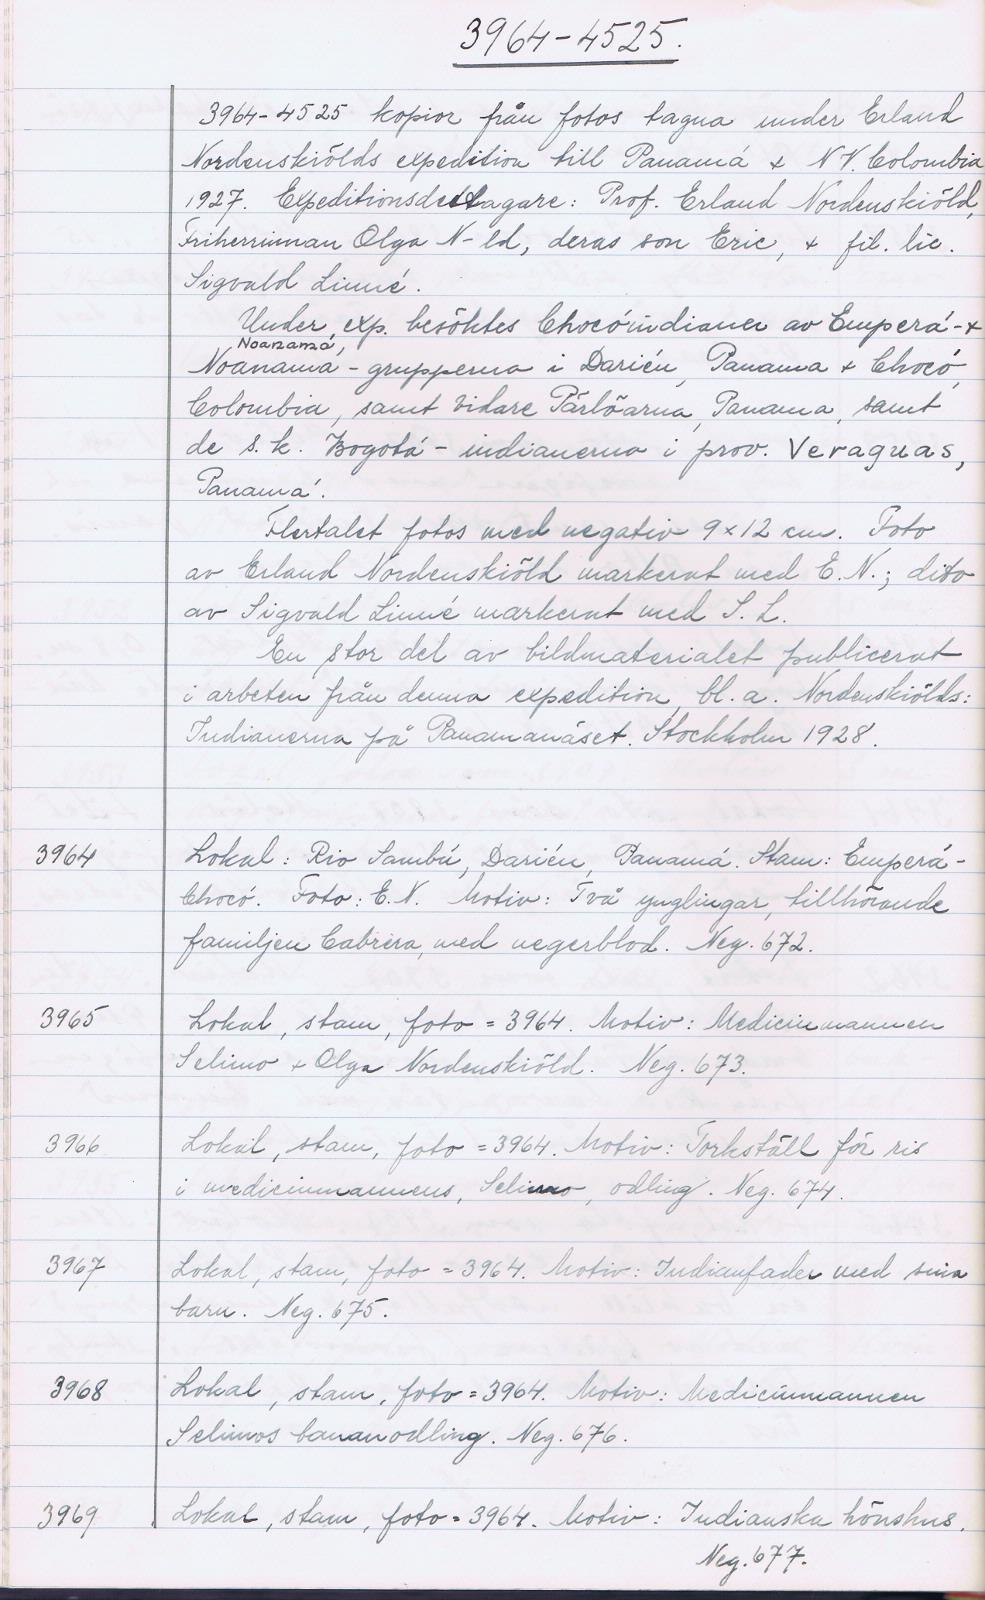 3964-4525.
3964-4525 kopior från fotos tagna under Erland
Nordenskiölds expedition till Panamá & N V. Colombia
1927. Expeditionsdeltagare: Prof. Erland Nordenskiöld,
Friherrinnan Olga N-ld, deras son Eric, & fil. lic.
Sigvald Linné.
Under exp. besöktes Chocóindianer av Emperá- &
Noanamá,
Noanama - grupperna i Darién, Panama & Chocó,
Colombia, samt vidare Pärlöarna, Panama, samt
de s.k. Bogotá - indianerna i prov. Veraguas,
Panamá.
Flertalet fotos med negativ 9x12 cm. Foto
av Erland Nordenskiöld markerat med E. N.; dito
av Sigvald Linné markerat med S. L.
En stor del av bildmaterialet publicerat
i arbeten från denna expedition, bl. a. Nordenskiölds:
Indianerna på Panamanäset. Stockholm 1928.
3964 Lokal: Rio Sambú, Darién, Panamá. Stam: Emperá-
Chocó. Foto: E. N. Motiv: Två ynglingar, tillhörande
familjen Cabrera, med negerblod. Neg. 672.
3965 Lokal, stam, foto = 3964. Motiv: Medicinmannen
Selimo & Olga Nordenskiöld. Neg. 673.
3966 Lokal, stam, foto = 3964. Motiv: Torkställ för ris
i medicinmannens, Selimo, odling. Neg. 674.
3967 Lokal, stam, foto = 3964. Motiv: Indianfader med sina
barn. Neg. 675.
3968 Lokal, stam, foto = 3964. Motiv: Medicinmannen
Selimos bananodling. Neg. 676.
3969 Lokal, stam, foto = 3964. Motiv: Indianska hönshus.
Neg. 677.